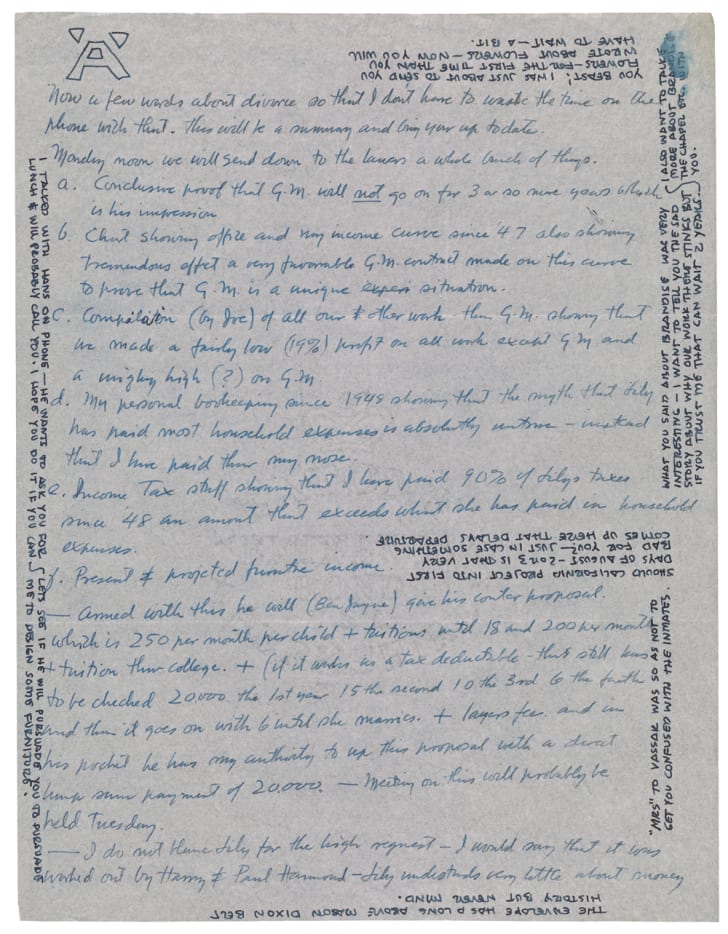 A
Now a few words about divorce so that I don't have to waste the time on the
phone with that. This will be a summary and bring your up to date.
Monday noon we will send down to the lawers a whole bunch of things.
a. Conclusive proof that G.M. will not go on for 3 or so more years which
is his impression
b. Chart showing office and my income curve since '47 also showing
tremendous effect a very favorable G.M. contract made on this curve
to prove that G.M. is a unique situation.
C. Compilation (by Joe) of all our & other work than G.M. showing that
we made a fairly low (19%) profit on all work except G M and
a mighty high (?) on G.M
d. My personal bookeeping since 1949 showing that the myth that Lily
has paid most household expenses is absolutely untrue – instead
that I have paid thru my nose.
e. Income Tax stuff showing that I have paid 90% of Lilys taxes
since '48 an amount that exceeds what she has paid in household
expenses.
f. Present & projected furnitre income.
— Armed with this he will (Ben Jayne) give his conter proposal.
which is 250 per month per child + tuitions until 18 and 200 per month
+ tuition thru college. + (if it works as a tax deductable – that still has
to be checked 20000 the 1st year 15 the second 10 the 3rd 6 the fourth
and then it goes on with 6 until she marries. + layers fee. and in
his pocket he has my authority to up this proposal with a direct
lump sum payment of 20,000. — Meeting on this will probably be
held Tuesday.
— I do not blame Lily for the high request – I would say that it was
worked out by Harry & Paul Hammond – Lily understands very little about money
YOU BEAST! I WAS JUST ABOUT TO SEND YOU
FLOWERS – FOR THE FIRST TIME THAN YOU
WROTE ABOUT FLOWERS – NOW YOU WILL
HAVE TO WAIT – A BIT.
WHAT YOU SAID ABOUT BRANDISE WAS VERY
INTERESTING – I WANT TO TELL YOU THE SAD
STORY ABOUT WHY OUR WORK THERE STINKS BUT
IF YOU TRUST ME THAT CAN WAIT 2 YEARS.
I ALSO WANT TO TALK
MORE ABOUT BRANDISE
THE CHAPEL ETC. WITH
YOU.
SHOULD CALIFORNIA PROJECT INTO FIRST
DAYS OF AUGUST – 2 OR 3 IS THAT VERY
BAD FOR YOU? – JUST IN CASE SOMETHING
COMES UP HERE THAT DELAYS DEPARTURE
"MRS" TO VASSAR WAS SO AS NOT TO
GET YOU CONFUSED WITH THE INMATES.
I TALKED WITH HANS ON PHONE – HE WANTS TO ASK YOU FOR
LUNCH & WILL PROBABLY CALL YOU. I HOPE YOU DO IT IF YOU CAN
LETS SEE IF HE WILL PURSUADE YOU TO PURSUADE
ME TO DESIGN SOME FURNITURE.
THE ENVELOPE HAS A LONG ABOVE MASON DIXON BELT
HISTORY BUT NEVER MIND.